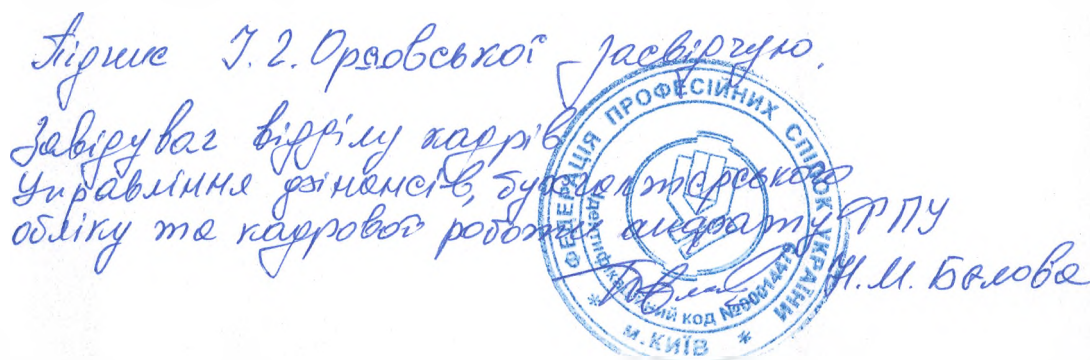 Підпис І.Г. Орловської засвідчую.
Завідувач відділу кадрів
Управління фінансів, бухгалтерського
обліку та кадрової роботи апарату ФПУ
Н.М. Бєлова
ФЕДЕРАЦІЯ ПРОФЕСІЙНИХ СПІЛОК УКРАЇНИ
Ідентифікаційний код
* м.КИЇВ *